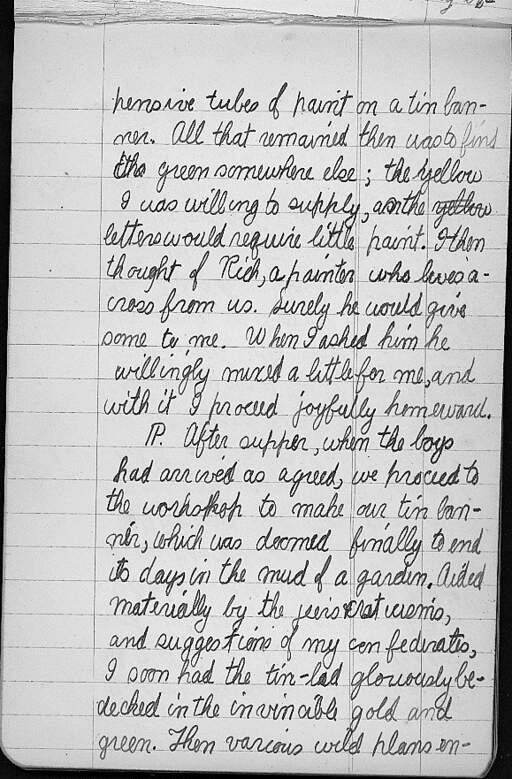 pensive tubes of paint on a tin ban-
ner. All that remained then was to find
the green somewhere else; the yellow
I was willing to supply, as the yellow
letters would require little paint. I then
thought of Rich, a painter who lives a-
cross from us. Surely he would give
some to me. When I asked him he
willingly mixed a little for me, and
with it I proceed joyfully homeward.
P. After supper, when the boys
had arrived as agreed, we proceed to
the workshop to make our tin ban-
ner, which was doomed finally to end
its days in the mud of a garden. Aided
materially by the
and suggestions of my confederates,
I soon had the tin-lad gloriously be-
decked in the invincible gold and
green. Then various wild plans en-